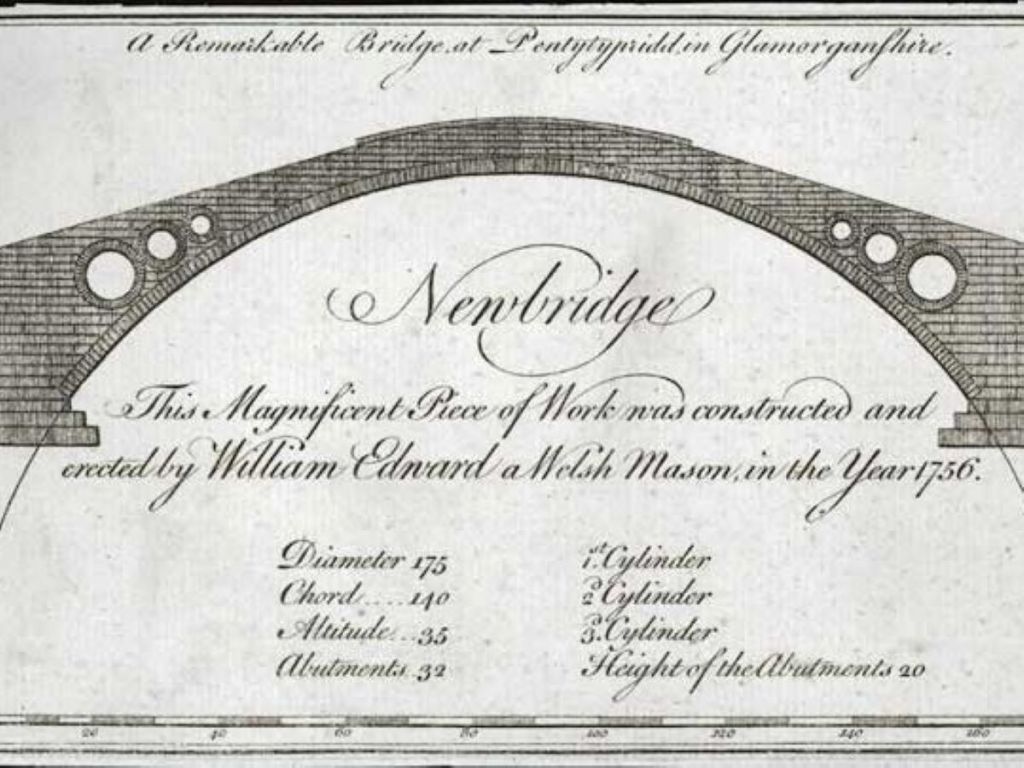 A Remarkable Bridge, at Pontytypridd, in Glamorganshire.
Newbridge
This Magnificent Piece of Work was constructed and
erected by William Edward a Welsh Mason, in the Year 1756.
Diameter 175
Chord.....140
Altitude...35
Abutments. 32
1.st Cylinder
2.d Cylinder
3.d Cylinder
Height of the Abutments 20
20 40 60 80 100 120 140 160